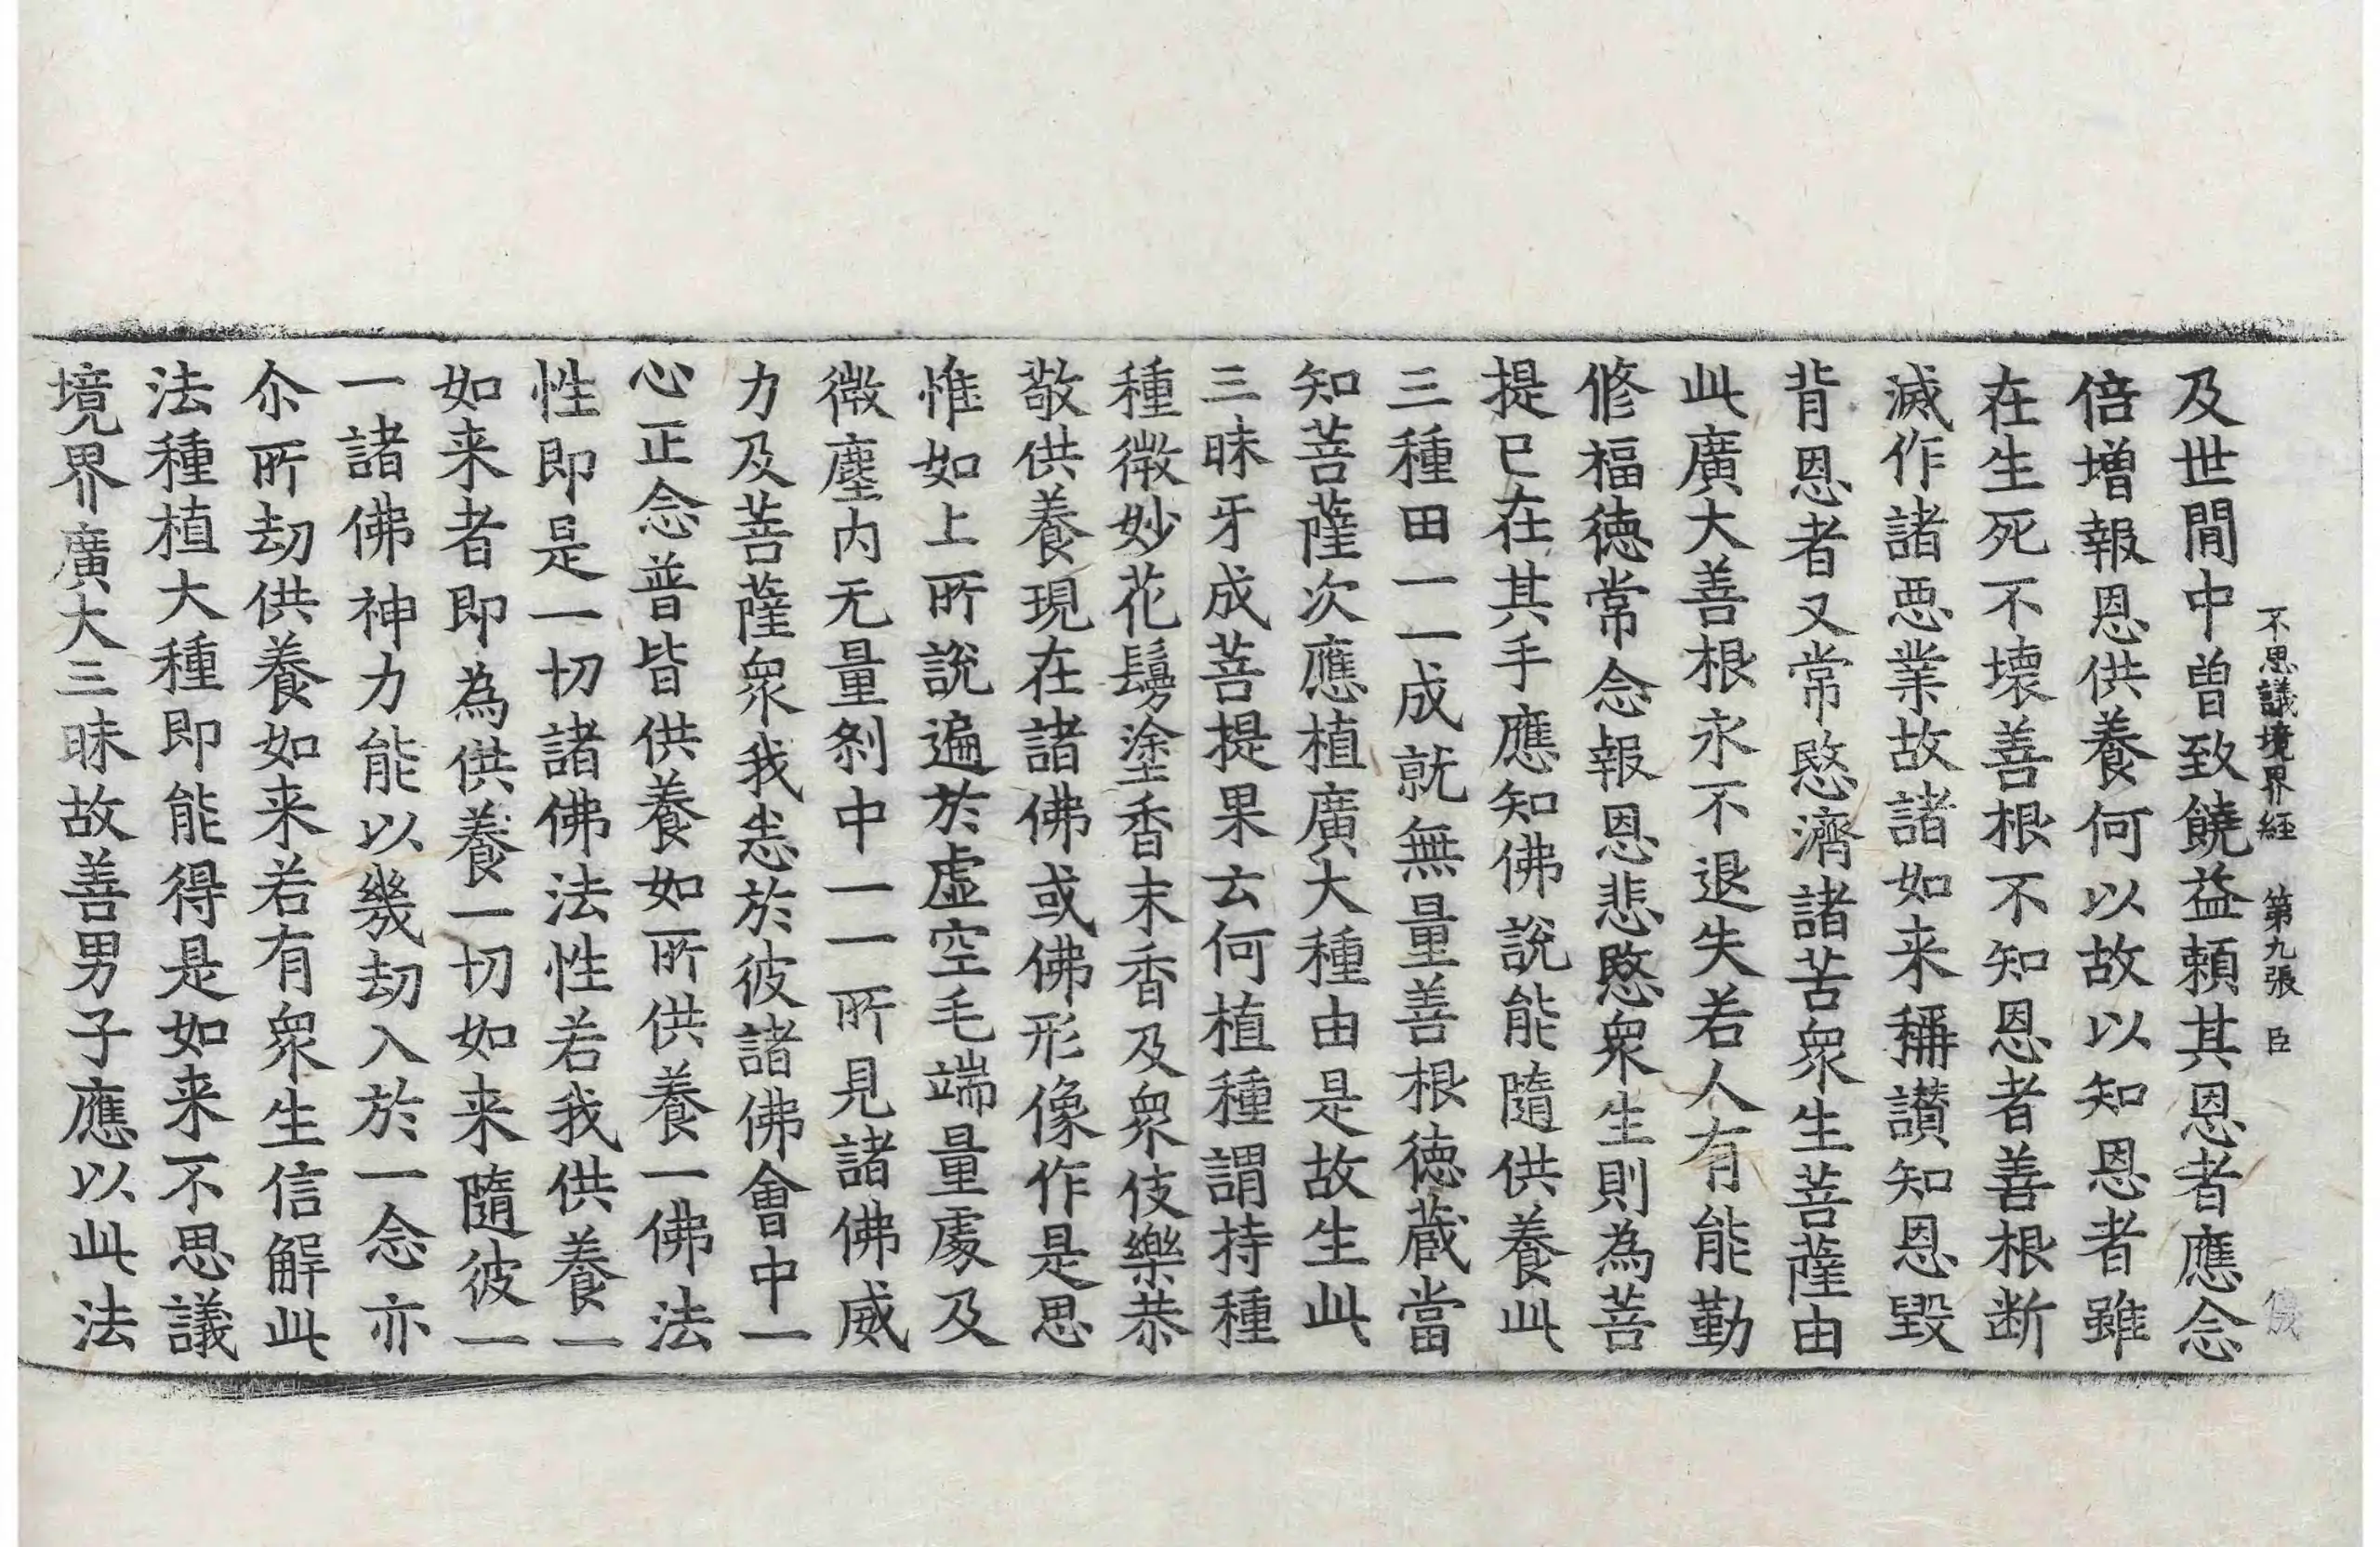 不思議境界経 第九張 臣
及世間中曽致饒益頼其恩者應念
倍增報恩供養何以故以知恩者雖
在生死不壞善根不知恩者善根断
滅作諸惡業故諸如来稱讃知恩毀
背恩者又常愍濟諸苦衆生菩薩由
此廣大善根永不退失若人有能勤
修福德常念報恩悲愍衆生則為菩
提已在其手應知佛說能隨供養此
三種田一一成就無量善根德蔵當
知菩薩次應植廣大種由是故生此
三昧牙成菩提果云何植種謂持種
種微妙花鬘塗香末香及衆伎樂恭
敬供養現在諸佛或佛形像作是思
惟如上所說遍於虛空毛端量處及
微塵内无量刹中一一所見諸佛威
力及菩薩衆我悉於彼諸佛會中一
心正念普皆供養如所供養一佛法
性即是一切諸佛法性若我供養一
如来者即為供養一切如来隨彼一
一諸佛神力能以幾劫入於一念亦
尒所劫供養如来若有衆生信解此
法種植大種即能得是如来不思議
境界廣大三昧故善男子應以此法